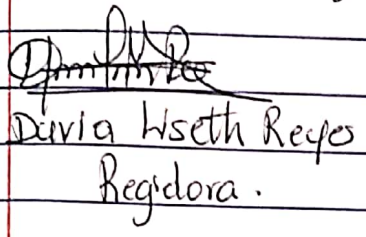 Davia Liseth Reyes
Regidora.